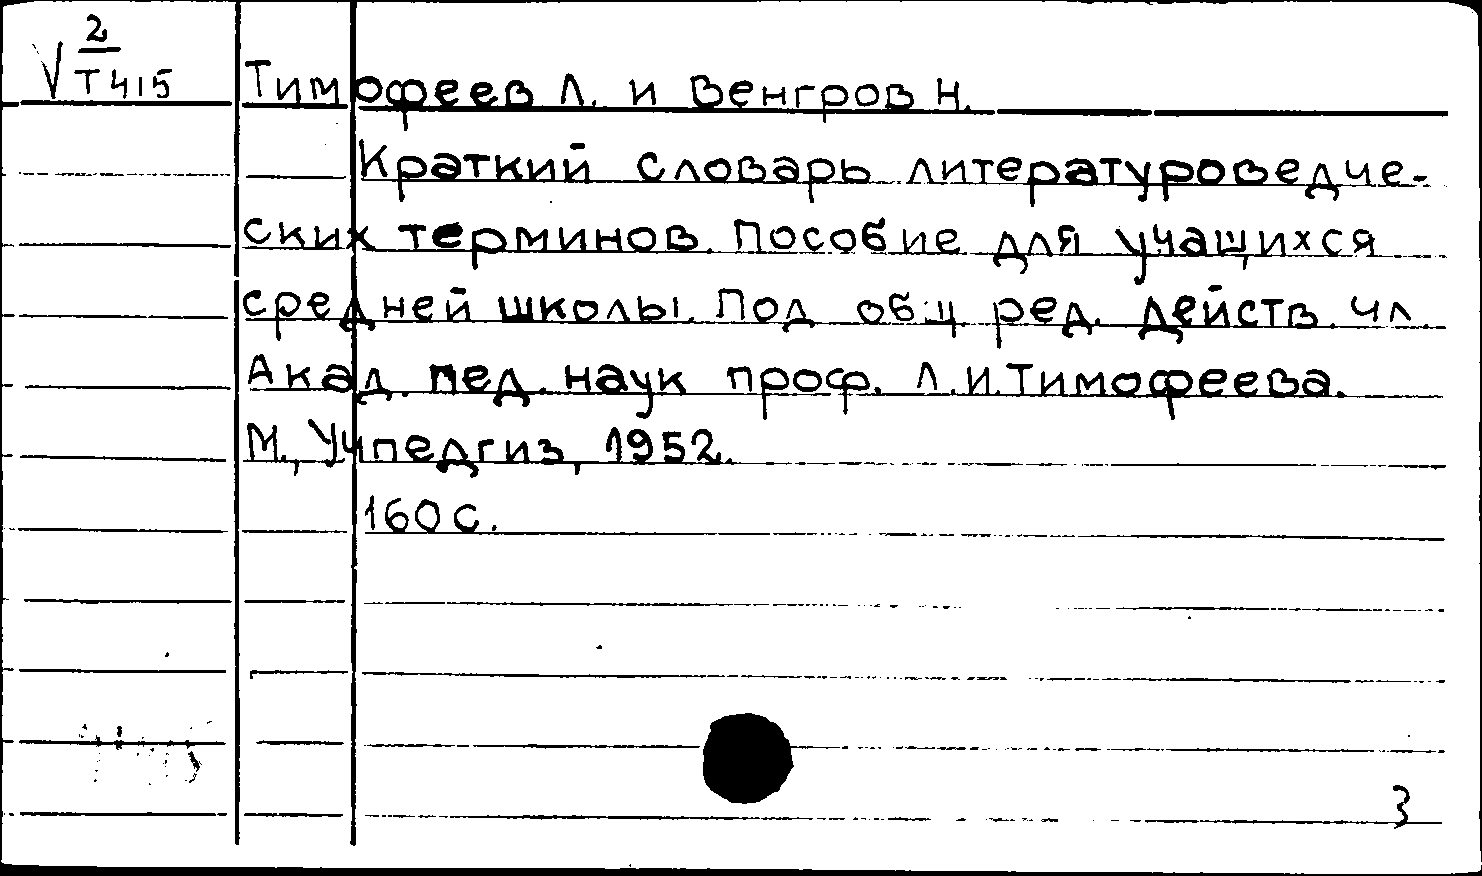 V 2
Т415
Тимофеев Л. и Венгров Н.
Краткий словарь литературоведче-
ских терминов. Пособие для учащихся
средней школы. Под общ ред. действ. чл.
Акад. пед. наук проф. Л.И.Тимофеева.
М., Учпедгиз, 1952.
160 с.
3